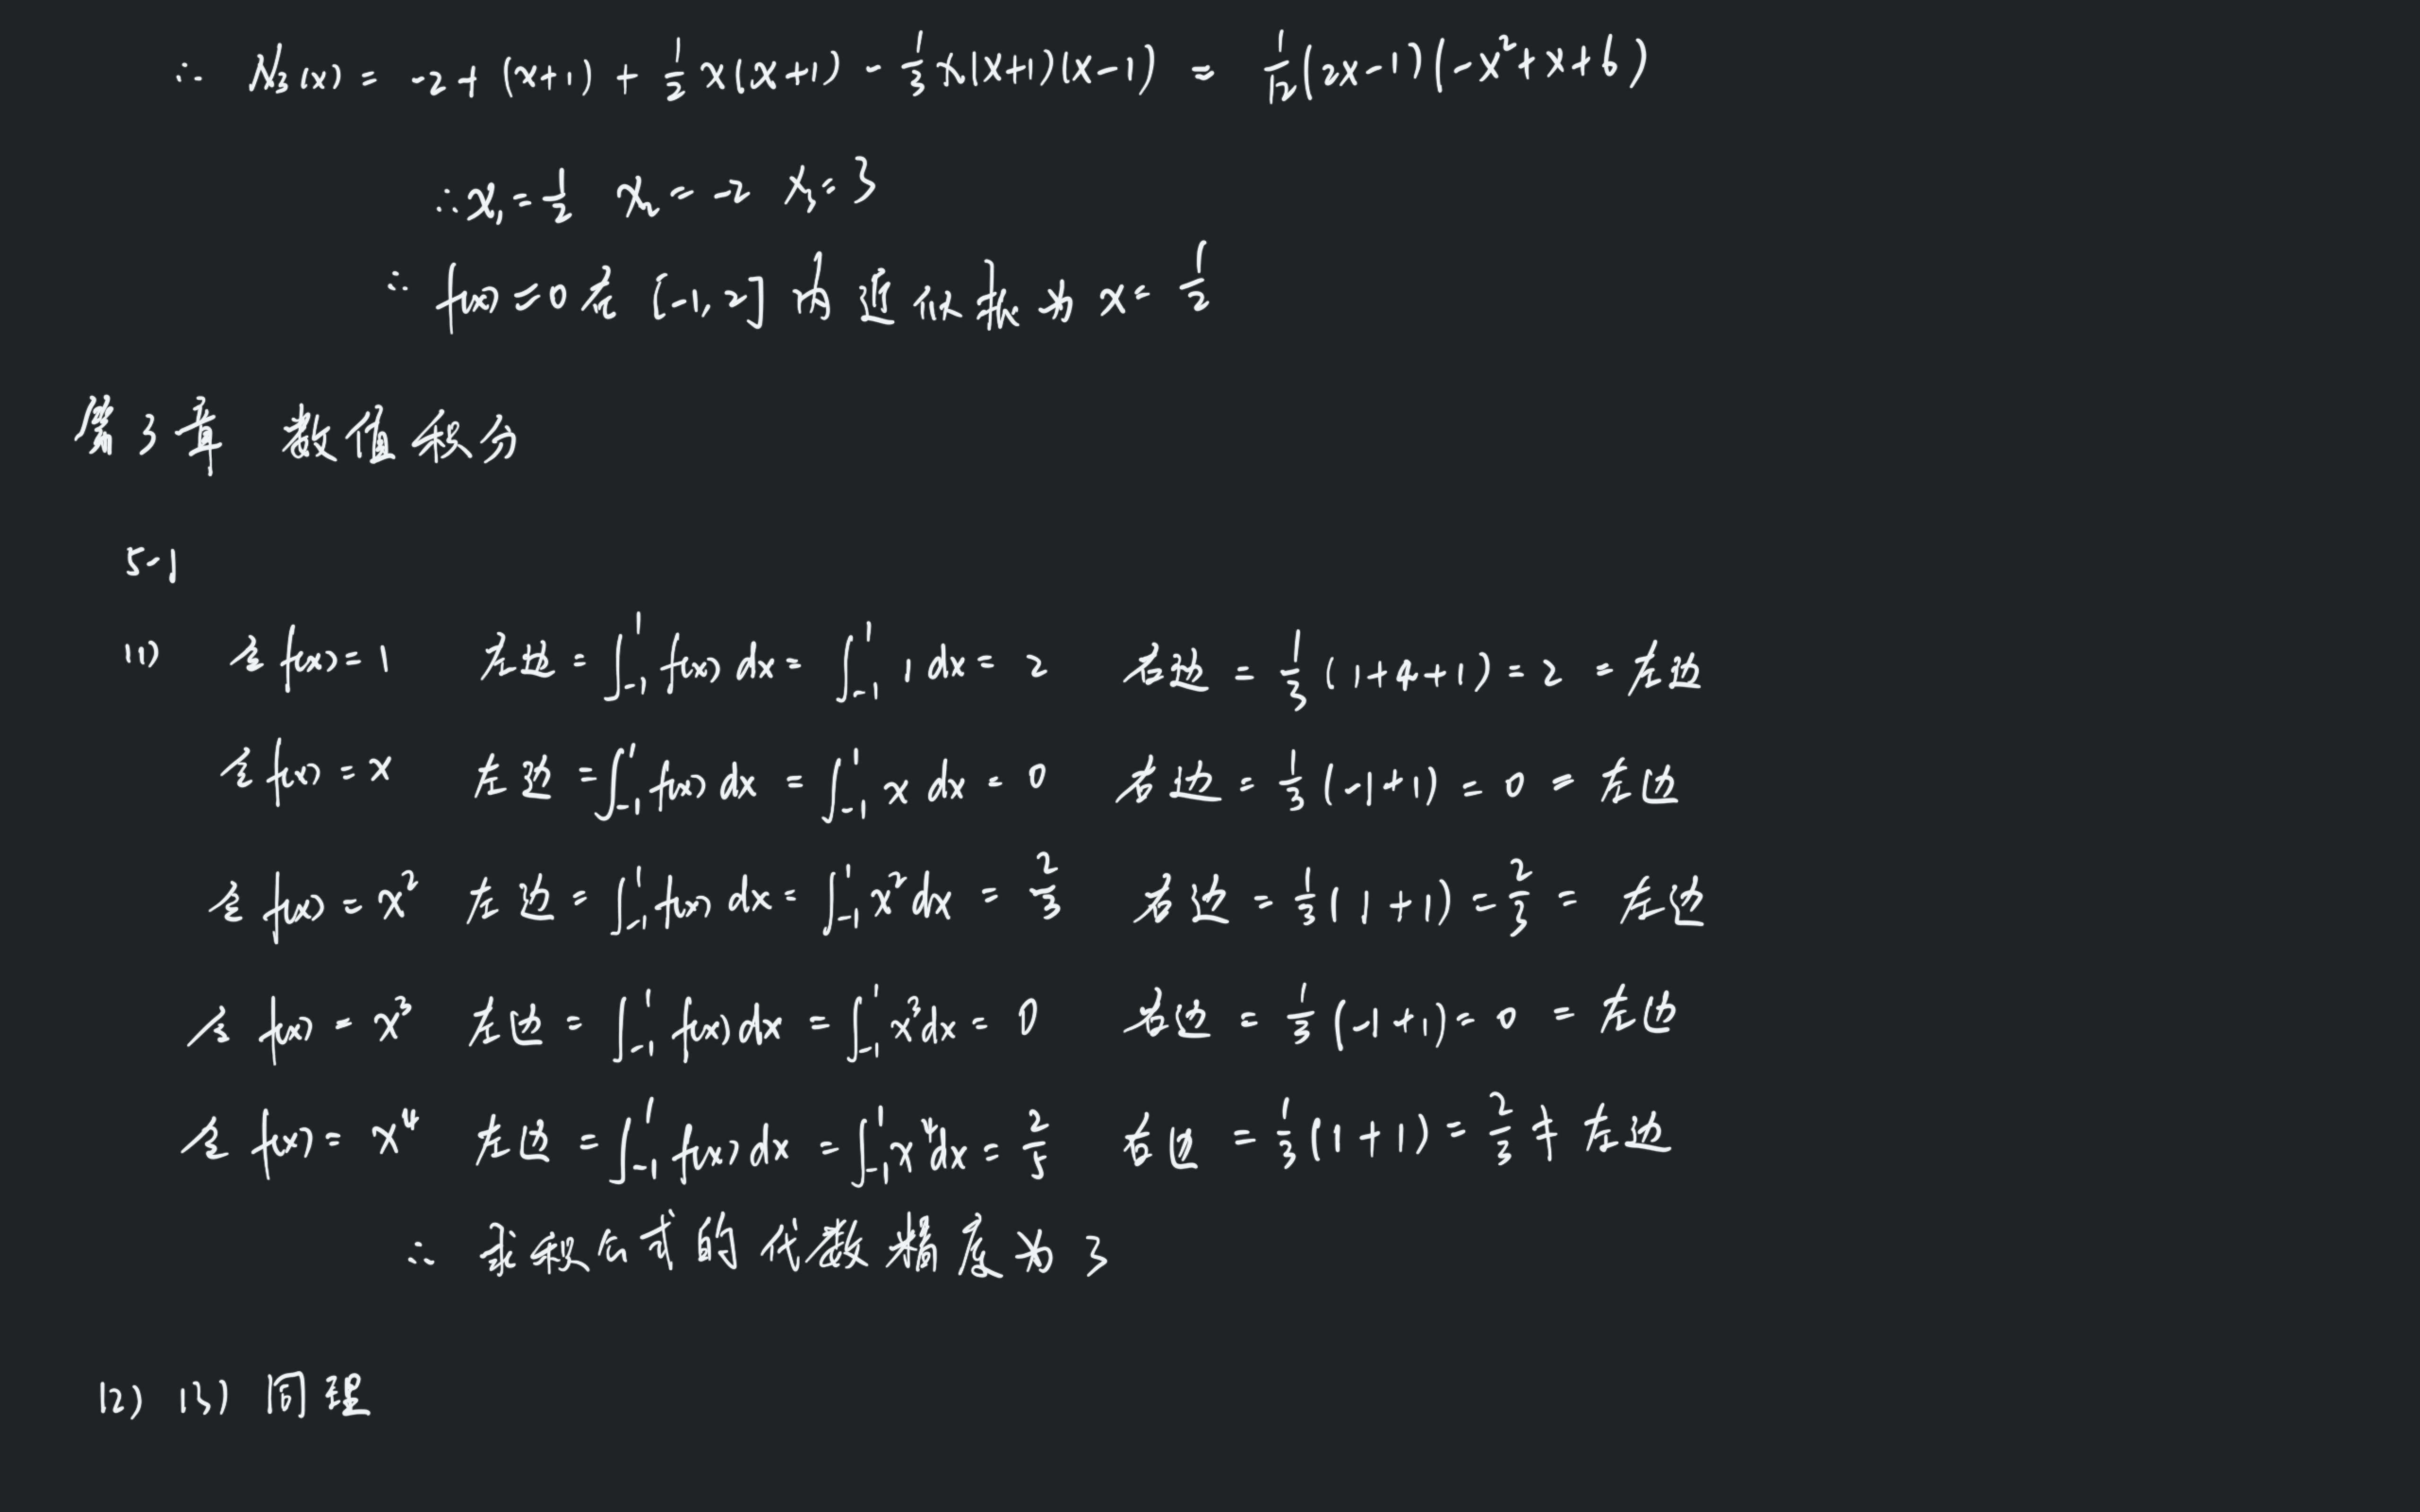 ∴ N₃(x) = -2 + (x+1) + 1/2 x(x+1) - 1/3 x(x+1)(x-1) = 1/12 (2x-1)(-x²+x+6)
∴ x₁ = 1/2 x₂ = -2 x₃ = 3
∴ f(x)=0 在 [-1,2] 内近似根为 x = 1/2
第3章 数值积分
5-1
(1) 令 f(x)=1 左边 = ∫₋₁¹ f(x) dx = ∫₋₁¹ 1 dx = 2 右边 = 1/3 (1+4+1) = 2 = 左边
令 f(x) = x 左边 = ∫₋₁¹ f(x) dx = ∫₋₁¹ x dx = 0 右边 = 1/3 (-1+1) = 0 = 左边
令 f(x) = x² 左边 = ∫₋₁¹ f(x) dx = ∫₋₁¹ x² dx = 2/3 右边 = 1/3 (1+1) = 2/3 = 左边
令 f(x) = x³ 左边 = ∫₋₁¹ f(x) dx = ∫₋₁¹ x³ dx = 0 右边 = 1/3 (-1+1) = 0 = 左边
令 f(x) = x⁴ 左边 = ∫₋₁¹ f(x) dx = ∫₋₁¹ x⁴ dx = 2/5 右边 = 1/3 (1+1) = 2/3 ≠ 左边
∴ 求积公式的代数精度为3
(2) (3) 同理